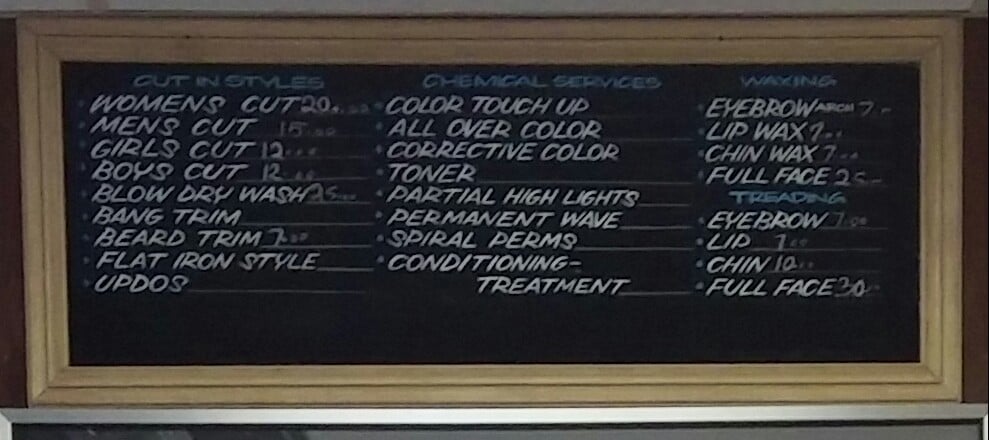 CUT IN STYLES
WOMENS CUT 20.00
MENS CUT 15.00
GIRLS CUT 12.00
BOYS CUT 12.00
BLOW DRY WASH 25.00
BANG TRIM
BEARD TRIM 7.00
FLAT IRON STYLE
UPDOS
CHEMICAL SERVICES
COLOR TOUCH UP
ALL OVER COLOR
CORRECTIVE COLOR
TONER
PARTIAL HIGH LIGHTS
PERMANENT WAVE
SPIRAL PERMS
CONDITIONING-
TREATMENT
WAXING
EYEBROW ARCH 7.-
LIP WAX 7.00
CHIN WAX 7.00
FULL FACE 25.-
TREADING
EYEBROW 7.00
LIP 7.00
CHIN 10.00
FULL FACE 30.-